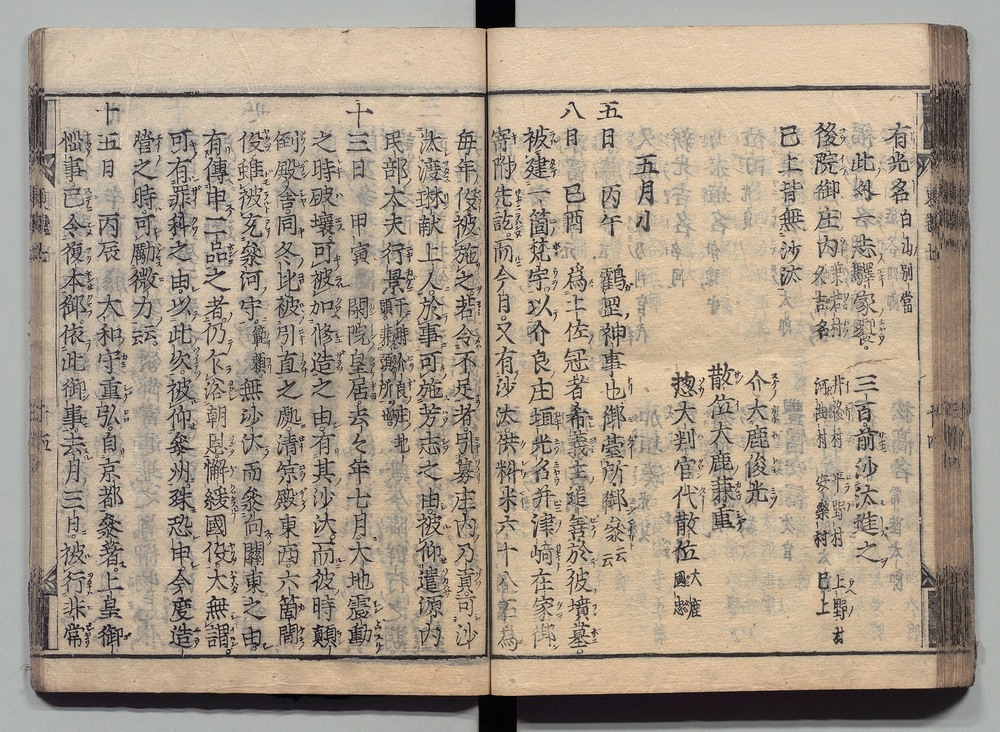 有光名 白山別當
此外一志驛家䉼 三百前沙汰進之
後院御庄内 久吉名 井後村 平野村 上野村 河曲村 安樂村 已上
已上皆無沙汰
介大鹿俊光
散位大鹿兼重
惣大判官代散位 大鹿國忠
五月小
五日 丙午 鶴岡神事也御臺所御參云云
八日 己酉 爲土佐冠者希義主追善於彼墳墓
被建一箇梵宇以介良庄垣光名并津崎在家御
寄附先訖而今月又有沙汰供料米六十八石爲
每年役被施之若令不足者引募庄内乃貢可沙
汰渡琳猷上人於事可施芳志之由被仰遣源内
民部大夫行景 于時介良庄地頭
十三日 甲寅 閑院皇居去々年七月大地震動
之時破壞可被加修造之由有其沙汰而彼時顛
倒殿舍同冬比被引直之處清凉殿東西六箇間
役雖被充參河守 範頼 無沙汰而參向關東之由
有傳申二品之者仍乍浴朝恩懈緩國役大無謂
可有罪科之由以此次被仰參州殊恐申今度造
營之時可勵微力云云
十五日 丙辰 大和守重弘自京都參著上皇御
惱事已令復本御依此御事去月三日被行非常
東鑑七
十四
東鑑七
十五